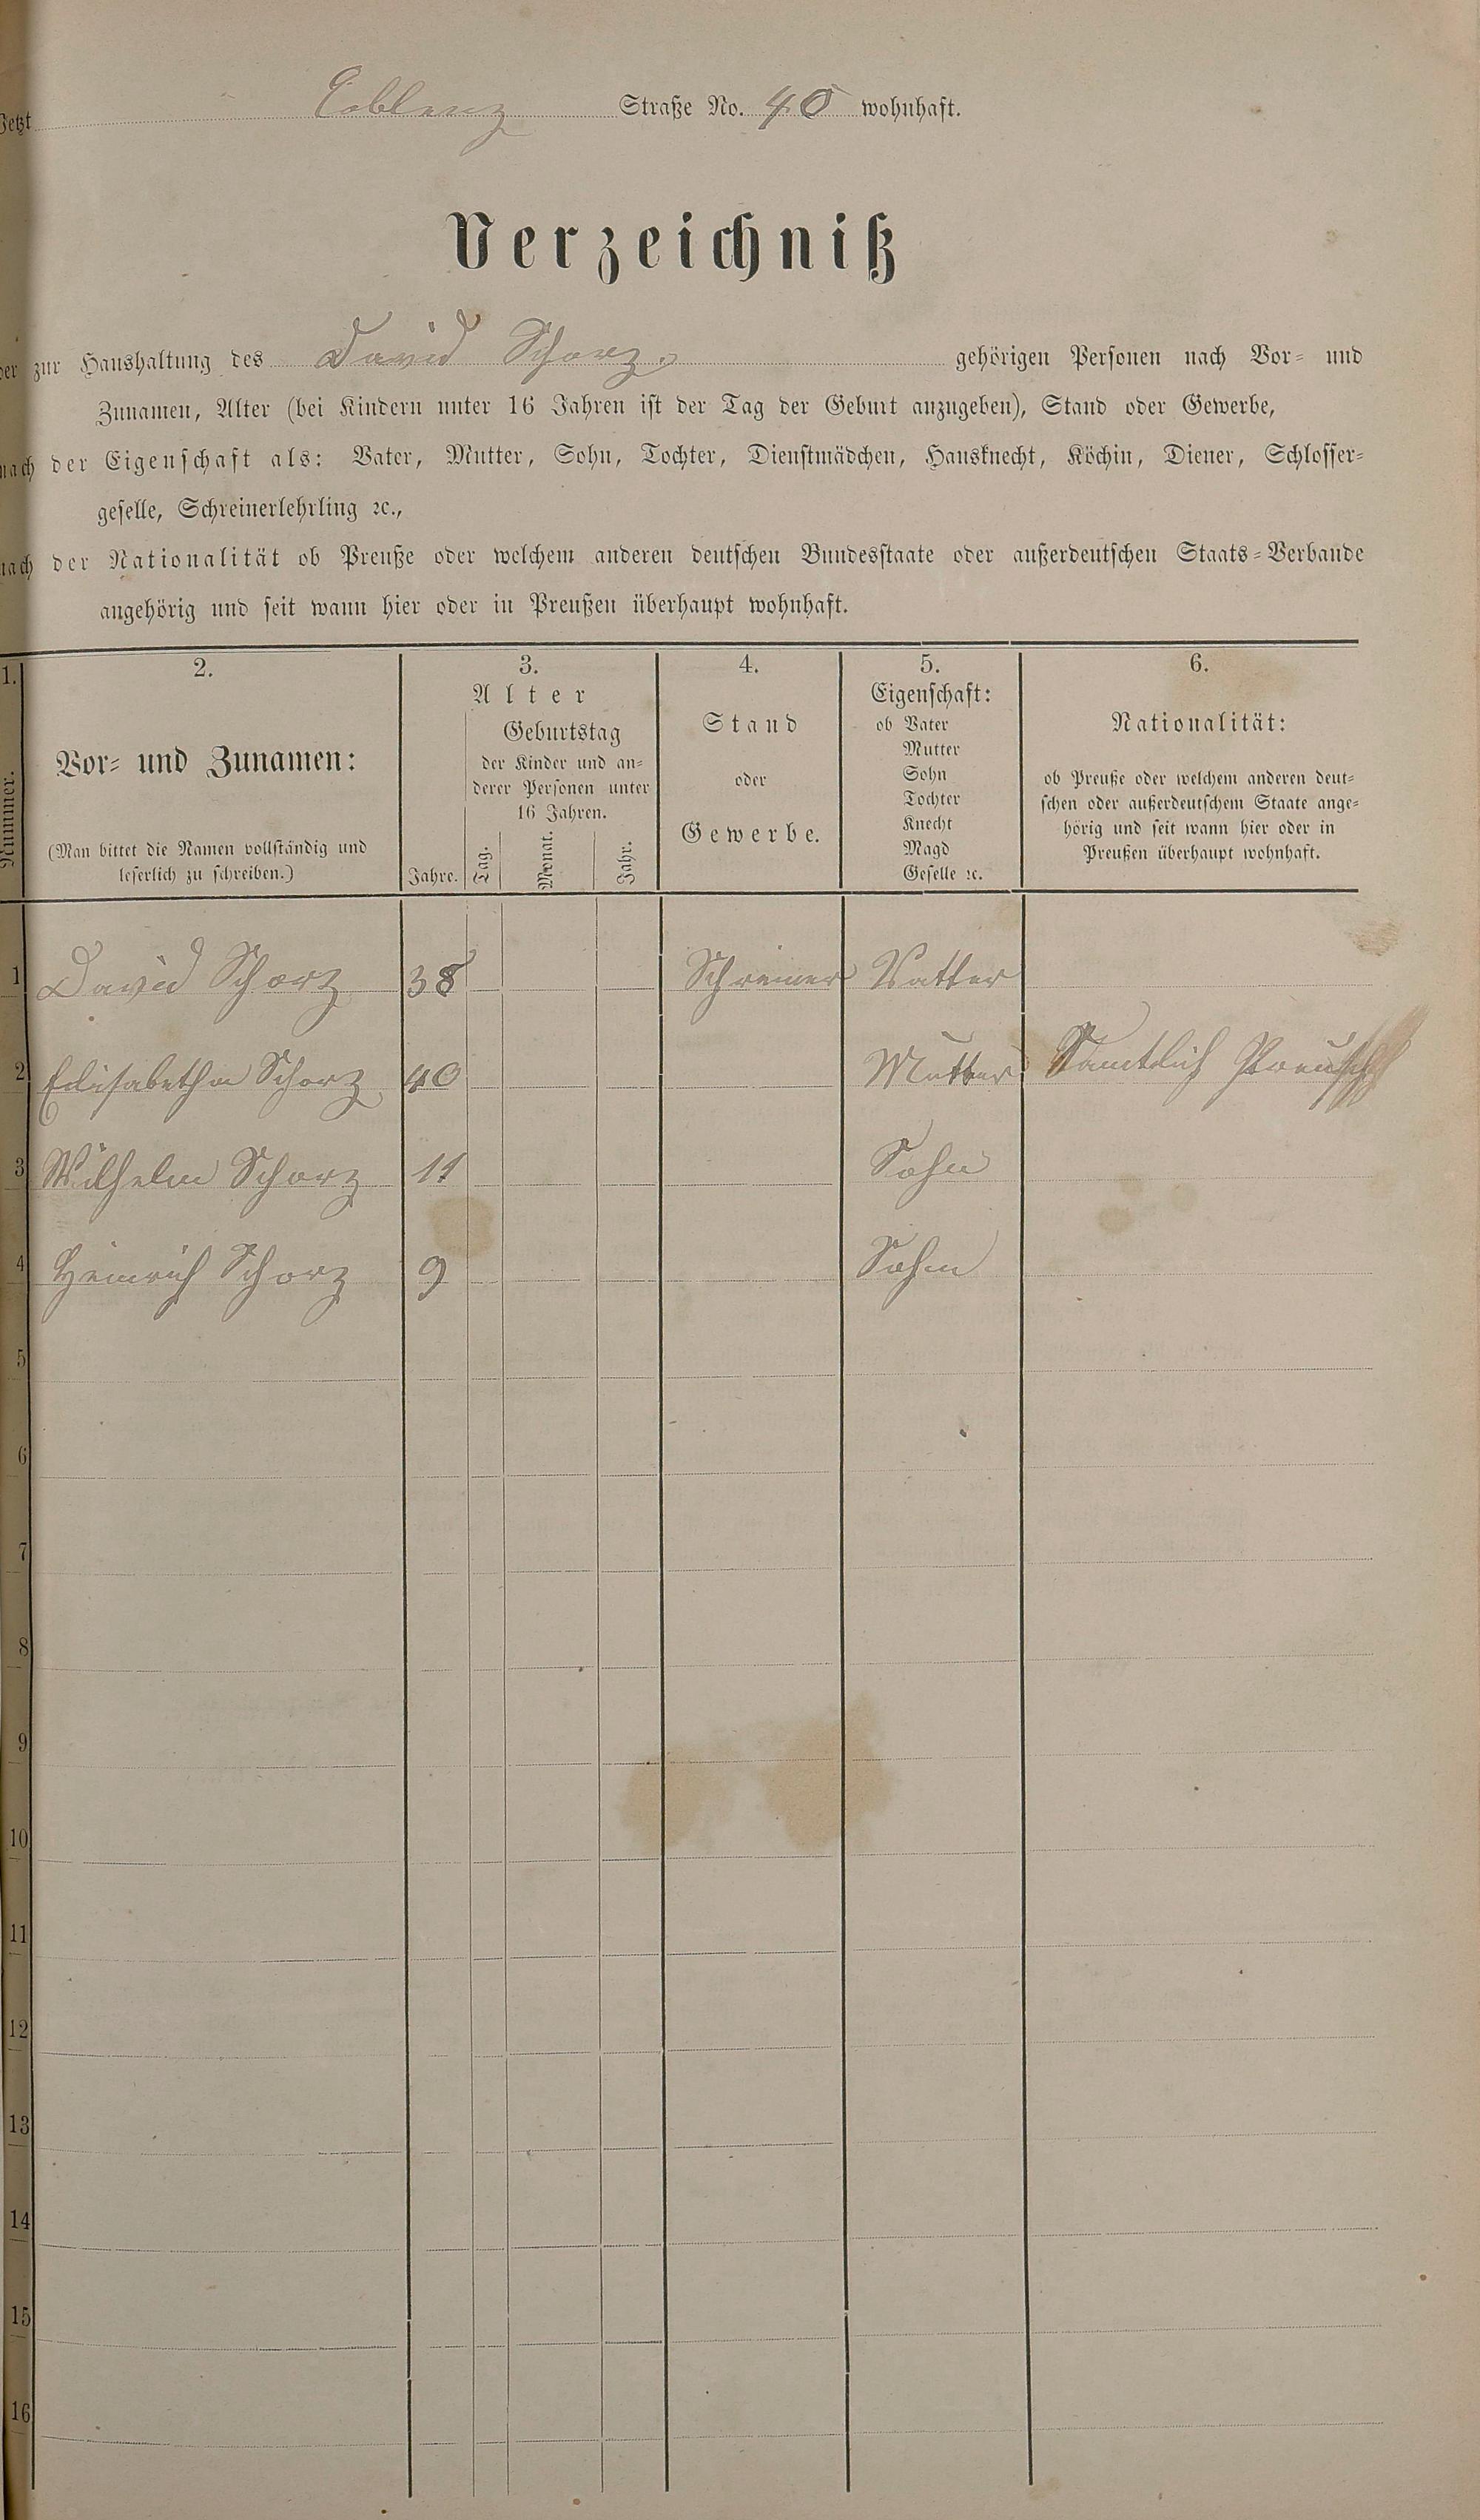 Jetzt Coblenz Straße No. 40 wohnhaft.
Verzeichniß
der zur Haushaltung des David Schorz. gehörigen Personen nach Vor- und
Zunamen, Alter (bei Kindern unter 16 Jahren ist der Tag der Geburt anzugeben), Stand oder Gewerbe,
nach der Eigenschaft als: Vater, Mutter, Sohn, Tochter, Dienstmädchen, Hausknecht, Köchin, Diener, Schlosser-
geselle, Schreinerlehrling ꝛc.,
nach der Nationalität ob Preuße oder welchem anderen deutschen Bundesstaate oder außerdeutschen Staats-Verbande
angehörig und seit wann hier oder in Preußen überhaupt wohnhaft.
1. 2. 3. 4. 5. 6.
Nummer.
Vor- und Zunamen:
(Man bittet die Namen vollständig und
leserlich zu schreiben.)
Alter
Jahre.
Geburtstag
der Kinder und an-
derer Personen unter
16 Jahren.
Tag. Monat. Jahr.
Stand
oder
Gewerbe.
Eigenschaft:
ob Vater
Mutter
Sohn
Tochter
Knecht
Magd
Geselle ꝛc.
Nationalität:
ob Preuße oder welchem anderen deut-
schen oder außerdeutschem Staate ange-
hörig und seit wann hier oder in
Preußen überhaupt wohnhaft.
1 David Schorz 38 Schreiner Vatter
2 Elisabetha Schorz 40 Mutter Samtlich Preußsch
3 Wilhelm Schorz 11 Sohn
4 Heinrich Schorz 9 Sohn
5
6
7
8
9
10
11
12
13
14
15
16